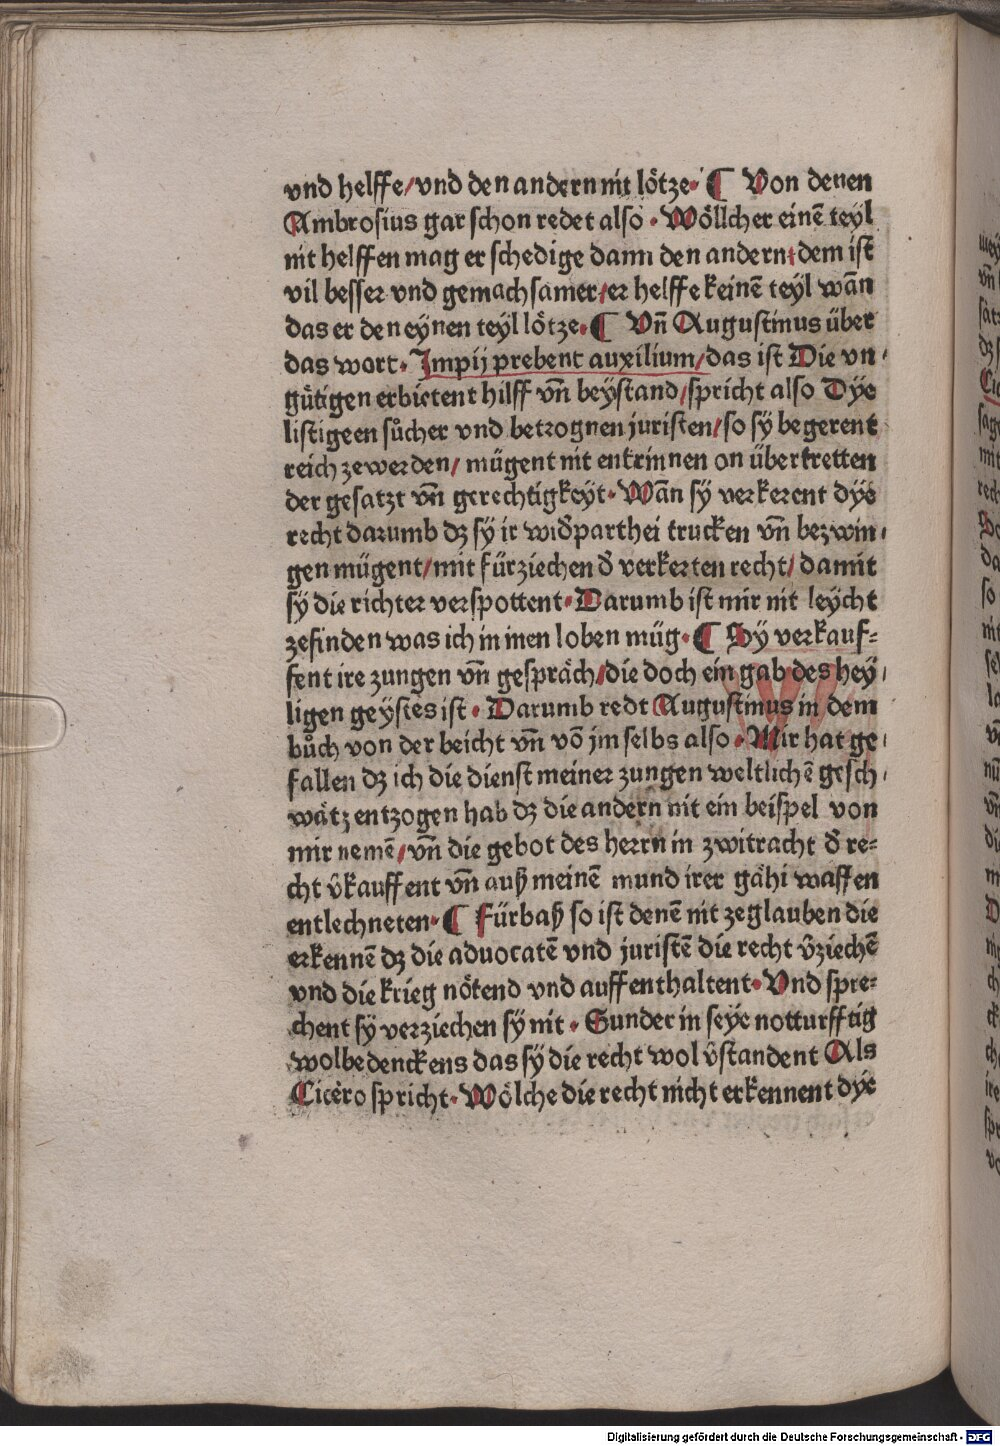 vnd helffe/vnd den andern nit lötze· ¶ Von denen
Ambrosius gar schon redet also · Wöllcher einē teyl
nit helffen mag er schedige dann den andern/dem ist
vil besser vnd gemachsamer/er helffe keinē teyl wān
das er den eynen teyl lötze· ¶ Vn̄ Augustinus über
das wort· Jmpij prebent auxilium/das ist Die vn⸗
gütigen erbietent hilff vn̄ beystand/spricht also Dÿe
listigeen sůcher vnd betrognen juristen/so sÿ begerent
reich zewerden/ mügent nit entrinnen on übertretten
der gesatzt vn̄ gerechtigkeyt· Wān sÿ verkerent dÿe
recht darumb dz sÿ ir wid̄parthei trucken vn̄ bezwin⸗
gen mügent/mit fürziechen d̄ verkerten recht/ damit
sÿ die richter verspottent· Darumb ist mir nit leycht
zefinden was ich in inen loben müg· ¶ Sÿ verkauf⸗
fent ire zungen vn̄ gespräch/die doch ein gab des hey⸗
ligen geystes ist· Darumb redt Augustinus in dem
bůch von der beicht vn̄ vō jm selbs also · Mir hat ge⸗
fallen dz ich die dienst meiner zungen weltlichē gesch⸗
wätz entzogen hab dz die andern nit ein beispel von
mir nemē/vn̄ die gebot des herrn in zwitracht d̄ re⸗
cht v̄kauffent vn̄ auß meinē mund irer gähi waffen
entlechneten· ¶ Fürbaß so ist denē nit zeglauben die
erkennē dz die aduocatē vnd juristē die recht v̄ziechē
vnd die krieg nötend vnd auffenthaltent· Vnd spre⸗
chent sÿ verziechen sÿ nit · Sunder in seye notturfftig
wolbedenckens das sÿ die recht wol v̄standent Als
Cicero spricht· Wölche die recht nicht erkennent dÿe
Digitalisierung gefördert durch die Deutsche Forschungsgemeinschaft - DFG